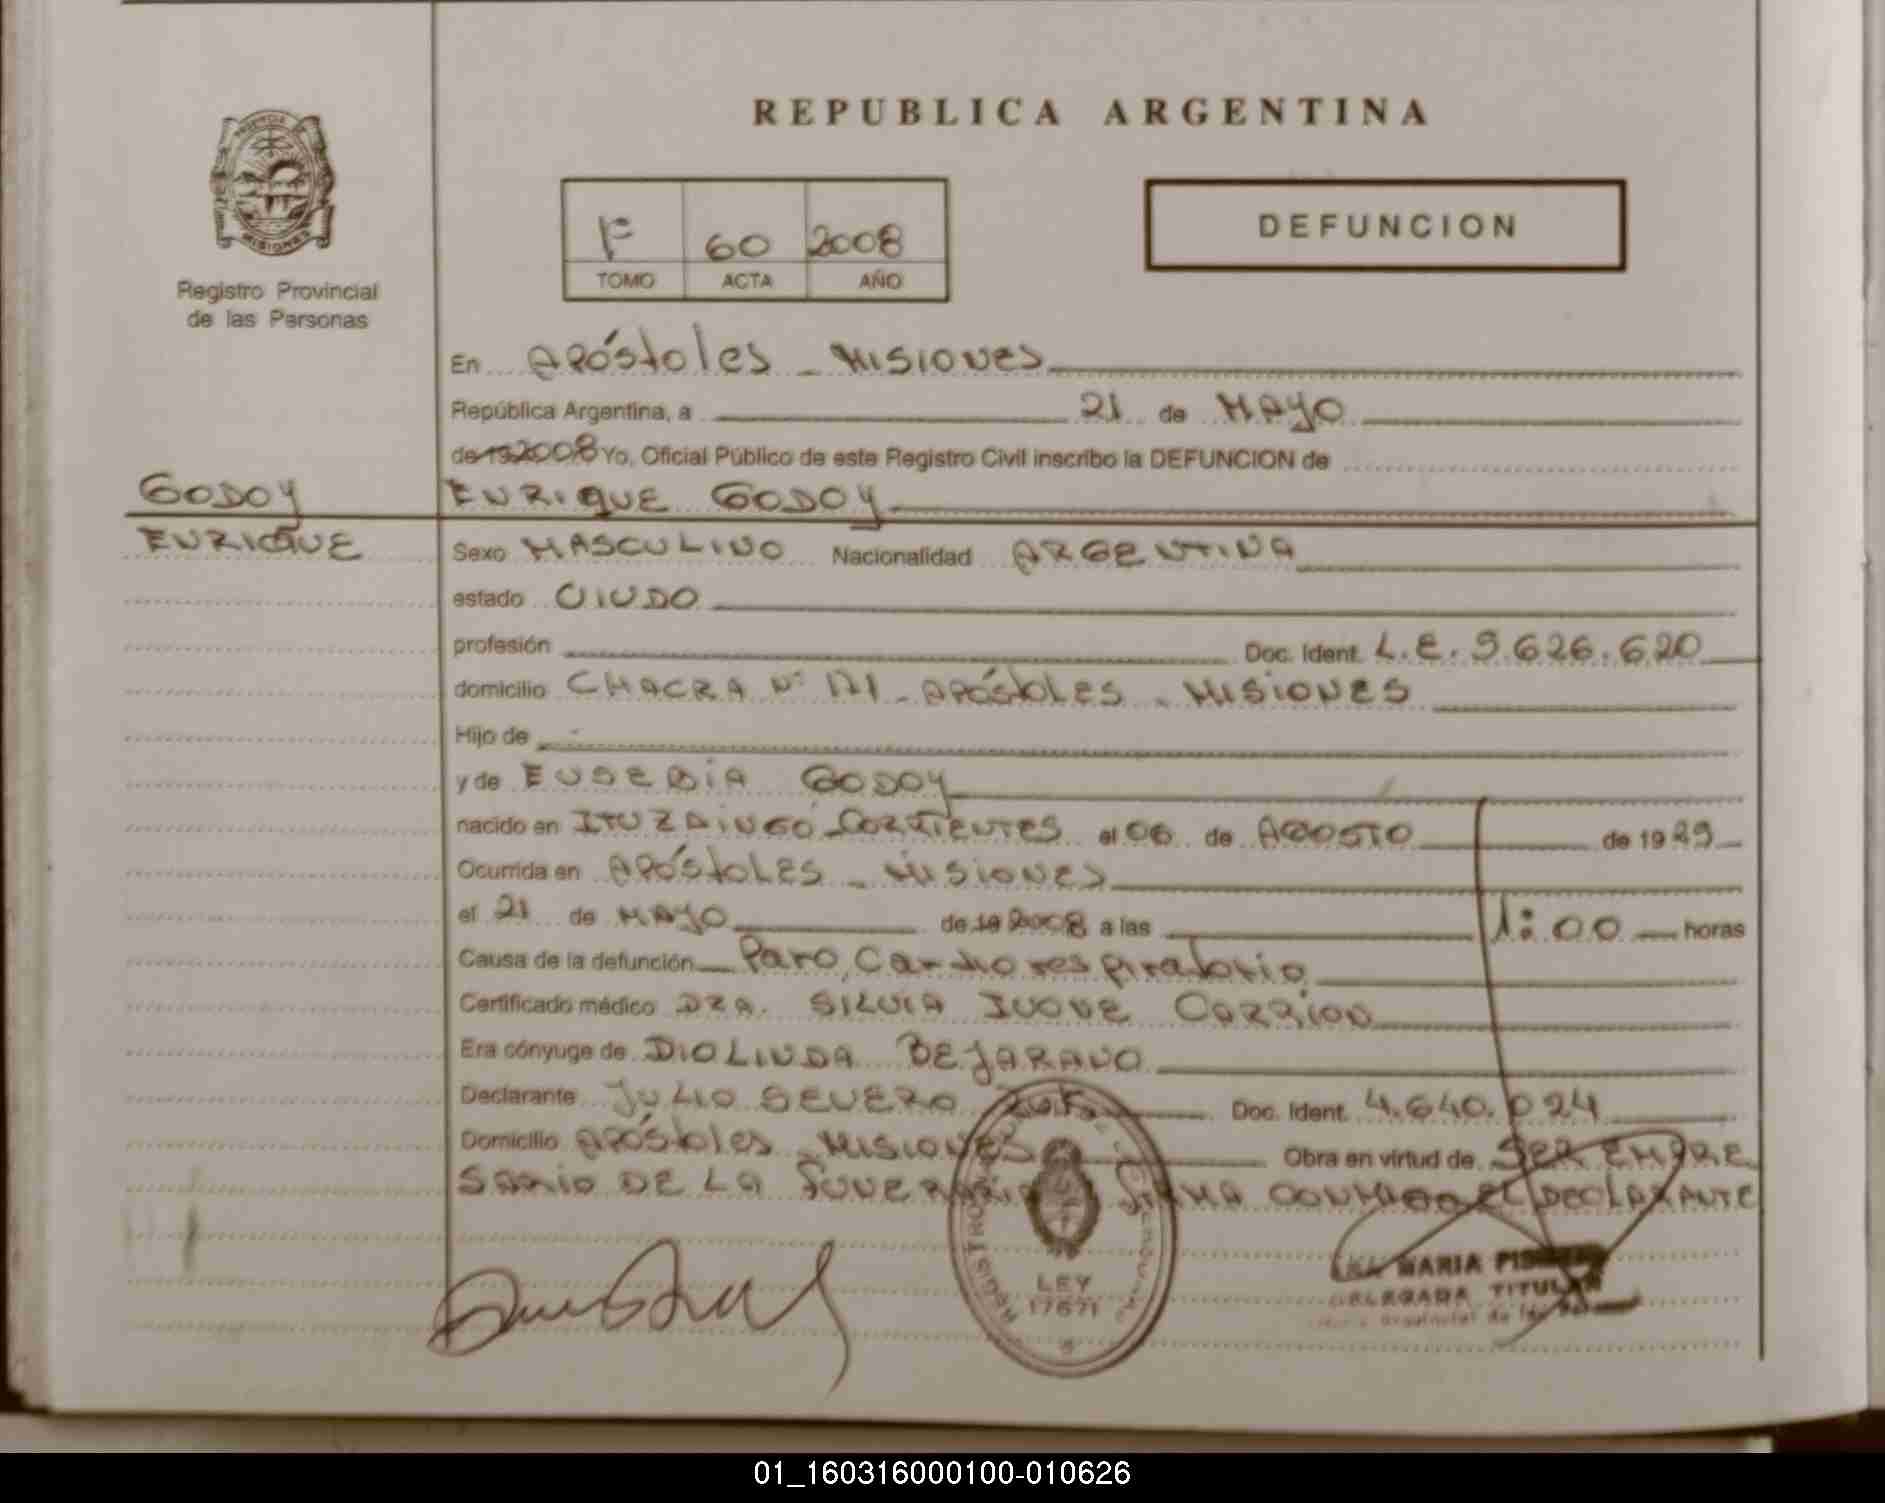 REPUBLICA ARGENTINA
PROVINCIA DE
MISIONES
Registro Provincial
de las Personas
1º 60 2008
TOMO ACTA AÑO
DEFUNCION
En APóstoles - MISIONES
República Argentina, a 21 de MAYO
de 19 2008 Yo, Oficial Público de este Registro Civil inscribo la DEFUNCION de
GODOY
ENRIQUE GODOY
ENRIQUE
Sexo MASCULINO Nacionalidad ARGENTINA
estado VIUDO
profesión Doc. Ident. L.E. 5.626.620
domicilio CHACRA Nº 171 - APóstoLES - MISIONES
Hijo de
y de EUSEBIA GODOY
nacido en ITUZAINGó - CORRIENTES el 06 de AGOSTO de 19 29
Ocurrida en APóstoLES - MISIONES
el 21 de MAYO de 19 2008 a las 1:00 horas
Causa de la defunción Paro Cardiorespiratorio
Certificado médico DRA. SILVIA IVONE CARRION
Era cónyuge de DIOLINDA BEJARANO
Declarante JULIO SEVERO Doc. Ident. 4.640.024
Domicilio APóstoles - MISIONES Obra en virtud de SER EMPRE
SARIO DE LA FUNERARIA FIRMA CONMIGO EL DECLARANTE
LEY
17671
MARIA
DELEGADA TITULAR
Provincial de las
01_160316000100-010626